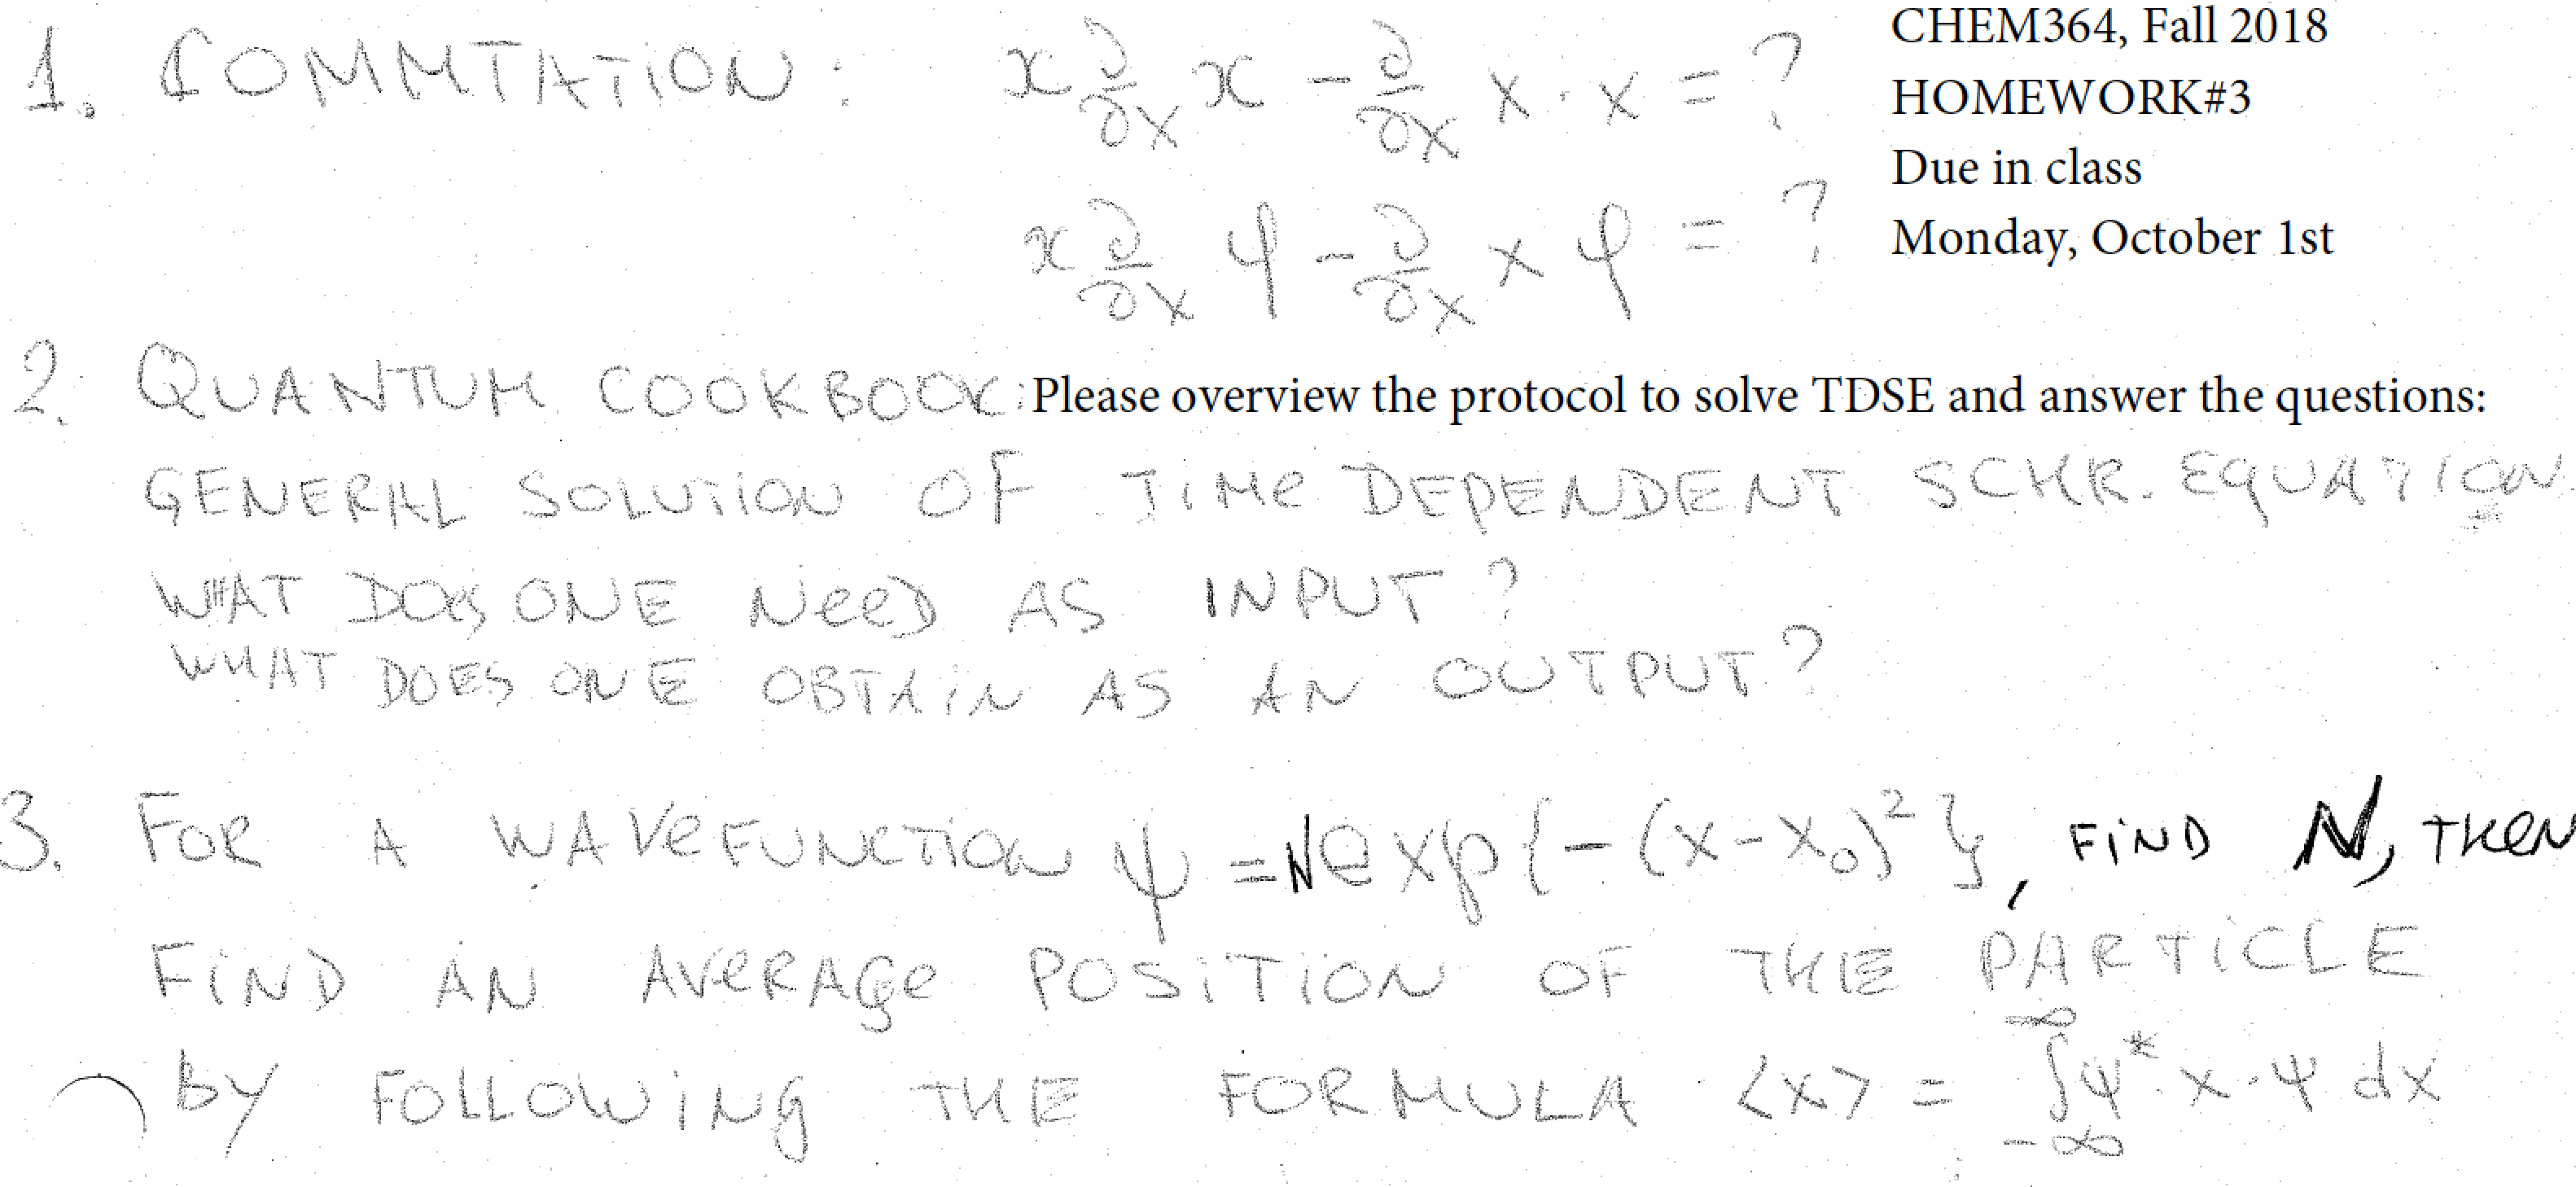 1. COMMTATION: x ∂/∂x x - ∂/∂x x · x = ?
x ∂/∂x φ - ∂/∂x x φ = ?
CHEM364, Fall 2018
HOMEWORK#3
Due in class
Monday, October 1st
2. QUANTUM COOKBOOK: Please overview the protocol to solve TDSE and answer the questions:
GENERAL SOLUTION OF TIME DEPENDENT SCHR. EQUATION.
WHAT DOES ONE NEED AS INPUT?
WHAT DOES ONE OBTAIN AS AN OUTPUT?
3. FOR A WAVEFUNCTION ψ = N exp{-(x-x₀)²}, FIND N, THEN
FIND AN AVERAGE POSITION OF THE PARTICLE
BY FOLLOWING THE FORMULA <x> = ∫_{-∞}^{∞} ψ* · x · ψ dx